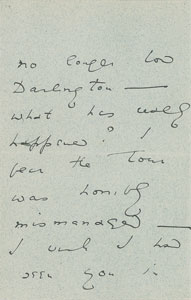 no longer
Darlington —
what has really
happened? I
fear the Tour
was horribly
mismanaged —
I wish I had
seen you in